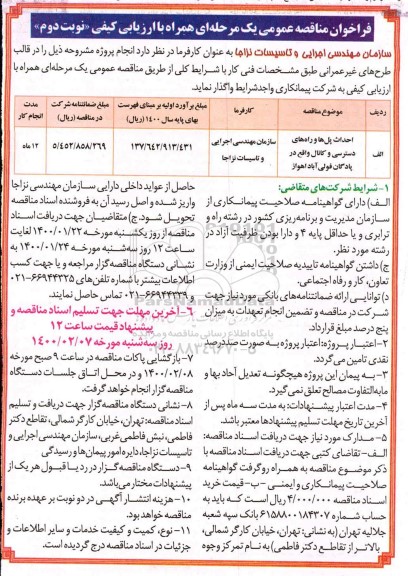 فراخوان مناقصه عمومی یک مرحله‌ای همراه با ارزیابی کیفی «نوبت دوم»
سازمان مهندسی اجرایی و تاسیسات نزاجا به عنوان کارفرما در نظر دارد انجام پروژه مشروحه ذیل را در قالب
طرح‌های غیرعمرانی طبق مشخصات فنی کار با شرایط کلی از طریق مناقصه عمومی یک مرحله‌ای همراه با
ارزیابی کیفی به شرکت پیمانکاری واجدشرایط واگذار نماید.
ردیف موضوع مناقصه کارفرما مبلغ برآورد اولیه بر مبنای فهرست بهای پایه سال ۱۴۰۰ (ریال) مبلغ ضمانتنامه شرکت در مناقصه (ریال) مدت انجام کار
الف احداث پل‌ها و راه‌های دسترسی و کانال واقع در پادگان فولی‌آباد اهواز سازمان مهندسی اجرایی و تاسیسات نزاجا ۱۳۷/۶۴۲/۹۱۳/۴۳۱ ۵/۴۵۲/۸۵۸/۲۶۹ ۱۲ ماه
۱- شرایط شرکت‌های متقاضی:
الف) دارای گواهینامه صلاحیت پیمانکاری از
سازمان مدیریت و برنامه‌ریزی کشور در رشته راه و
ترابری و یا حداقل پایه ۴ و دارا بودن ظرفیت آزاد در
رشته مورد نظر.
ج) داشتن گواهینامه تاییدیه صلاحیت ایمنی از وزارت
تعاون، کار و رفاه اجتماعی.
د) توانایی ارائه ضمانتنامه‌های بانکی مورد نیاز جهت
شرکت در مناقصه و تضمین انجام تعهدات به میزان
پنج درصد مبلغ قرارداد.
۲- اعتبار پروژه: اعتبار پروژه به صورت صددرصد
نقدی تامین می‌گردد.
۳- به پیمان این پروژه هیچگونه تعدیل آحاد بها و
مابه‌التفاوت مصالح تعلق نمی‌گیرد.
۴- مدت اعتبار پیشنهادات: به مدت سه ماه پس از
آخرین تاریخ مهلت تسلیم پیشنهادها معتبر باشد.
۵- مدارک مورد نیاز جهت دریافت اسناد مناقصه:
الف- تقاضای کتبی جهت دریافت اسناد مناقصه با
ذکر موضوع مناقصه به همراه رو گرفت گواهینامه
صلاحیت پیمانکاری و ایمنی - ب- قیمت خرید
اسناد مناقصه ۴/۰۰۰/۰۰۰ ریال است که باید به
حساب شماره ۶۱۵۸۸۰۰۱۸۴۳۰۷ بانک سپه شعبه
جلالیه تهران (به نشانی: تهران، خیابان کارگر شمالی،
بالاتر از تقاطع دکتر فاطمی) به نام تمرکز وجوه
حاصل از عواید داخلی دارایی سازمان مهندسی نزاجا
واریز شده و اصل رسید آن به فروشنده اسناد مناقصه
تحویل شود. ج) متقاضیان جهت دریافت اسناد
مناقصه از روز یکشنبه مورخه ۱۴۰۰/۰۱/۲۲ لغایت
ساعت ۱۲ روز سه‌شنبه مورخه ۱۴۰۰/۰۱/۲۴ به
نشانی دستگاه مناقصه‌گزار مراجعه و یا جهت کسب
اطلاعات بیشتر با شماره تلفن‌های ۶۶۹۴۴۳۲۵-۰۲۱
و ۶۶۹۴۴۳۳۹-۰۲۱ تماس حاصل نمایند.
۶- آخرین مهلت جهت تسلیم اسناد مناقصه و
پیشنهاد قیمت ساعت ۱۲
روز سه‌شنبه مورخه ۱۴۰۰/۰۲/۰۷
۷- بازگشایی پاکات مناقصه در ساعت ۹ صبح مورخه
۱۴۰۰/۰۲/۰۸ و در محل اتاق جلسات دستگاه
مناقصه‌گزار انجام خواهد گرفت.
۸- نشانی دستگاه مناقصه‌گزار جهت دریافت و تسلیم
اسناد مناقصه: تهران، خیابان کارگر شمالی، تقاطع دکتر
فاطمی، نبش فاطمی غربی، سازمان مهندسی اجرایی و
تاسیسات نزاجا، دایره امور پیمان‌ها و رسیدگی
۹- دستگاه مناقصه‌گزار در رد یا قبول هر یک از
پیشنهادات مختار می‌باشد.
۱۰- هزینه انتشار آگهی در دو نوبت بر عهده برنده
مناقصه خواهد بود.
۱۱- نوع، کمیت و کیفیت خدمات و سایر اطلاعات و
جزئیات در اسناد مناقصه درج گردیده است.